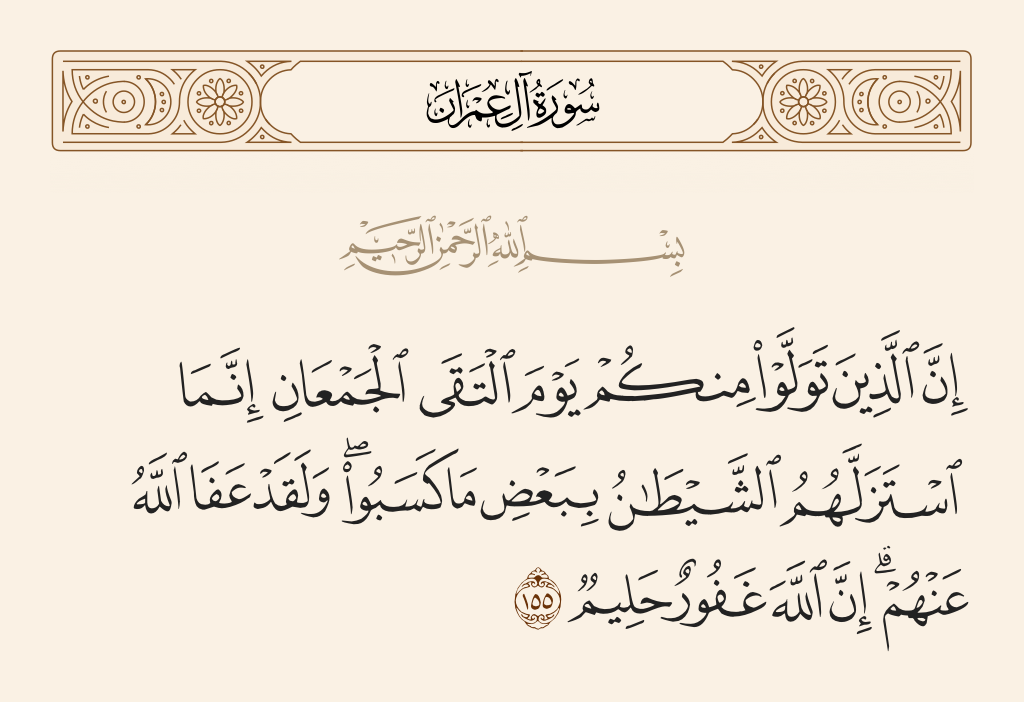 سُورَةُ آلِ عِمْرَان
بِسْمِ ٱللَّهِ ٱلرَّحْمَٰنِ ٱلرَّحِيمِ
إِنَّ ٱلَّذِينَ تَوَلَّوْا۟ مِنكُمْ يَوْمَ ٱلْتَقَى ٱلْجَمْعَانِ إِنَّمَا
ٱسْتَزَلَّهُمُ ٱلشَّيْطَٰنُ بِبَعْضِ مَا كَسَبُوا۟ ۖ وَلَقَدْ عَفَا ٱللَّهُ
عَنْهُمْ ۗ إِنَّ ٱللَّهَ غَفُورٌ حَلِيمٌ ١٥٥